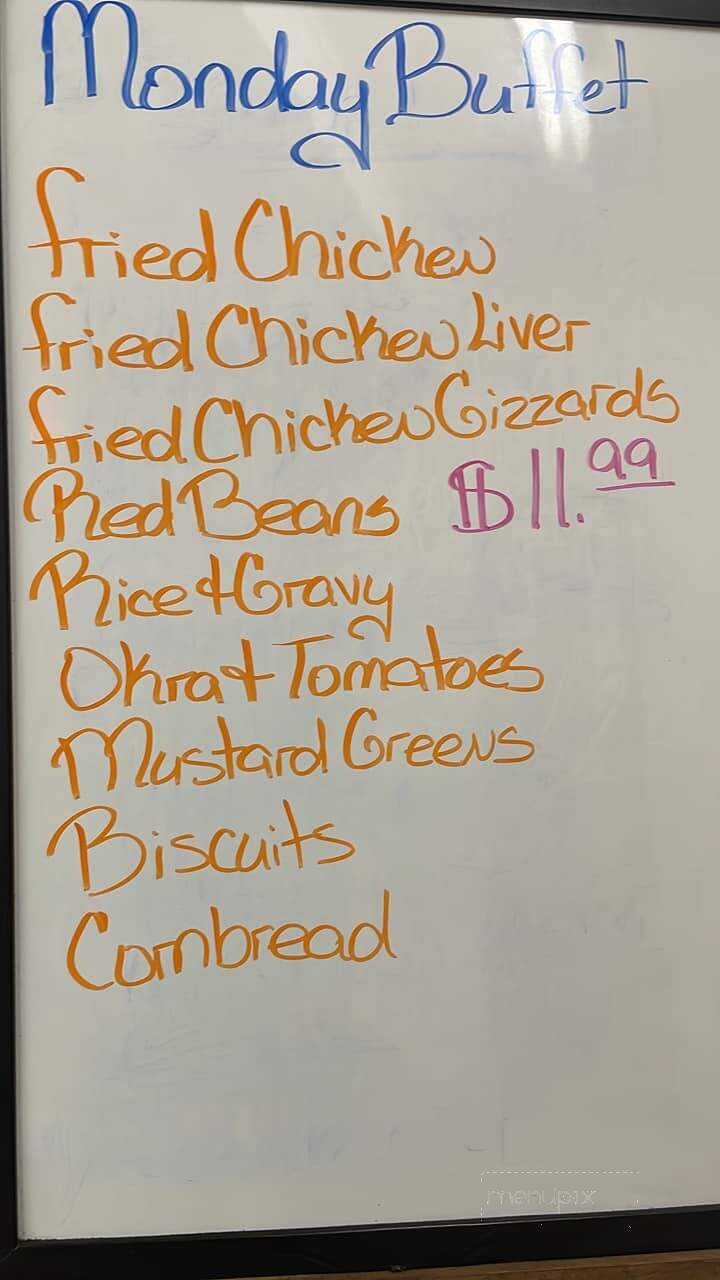 Monday Buffet
fried Chicken
fried Chicken Liver
fried Chicken Gizzards
Red Beans $11.99
Rice & Gravy
Okra & Tomatoes
Mustard Greens
Biscuits
Cornbread
menupix